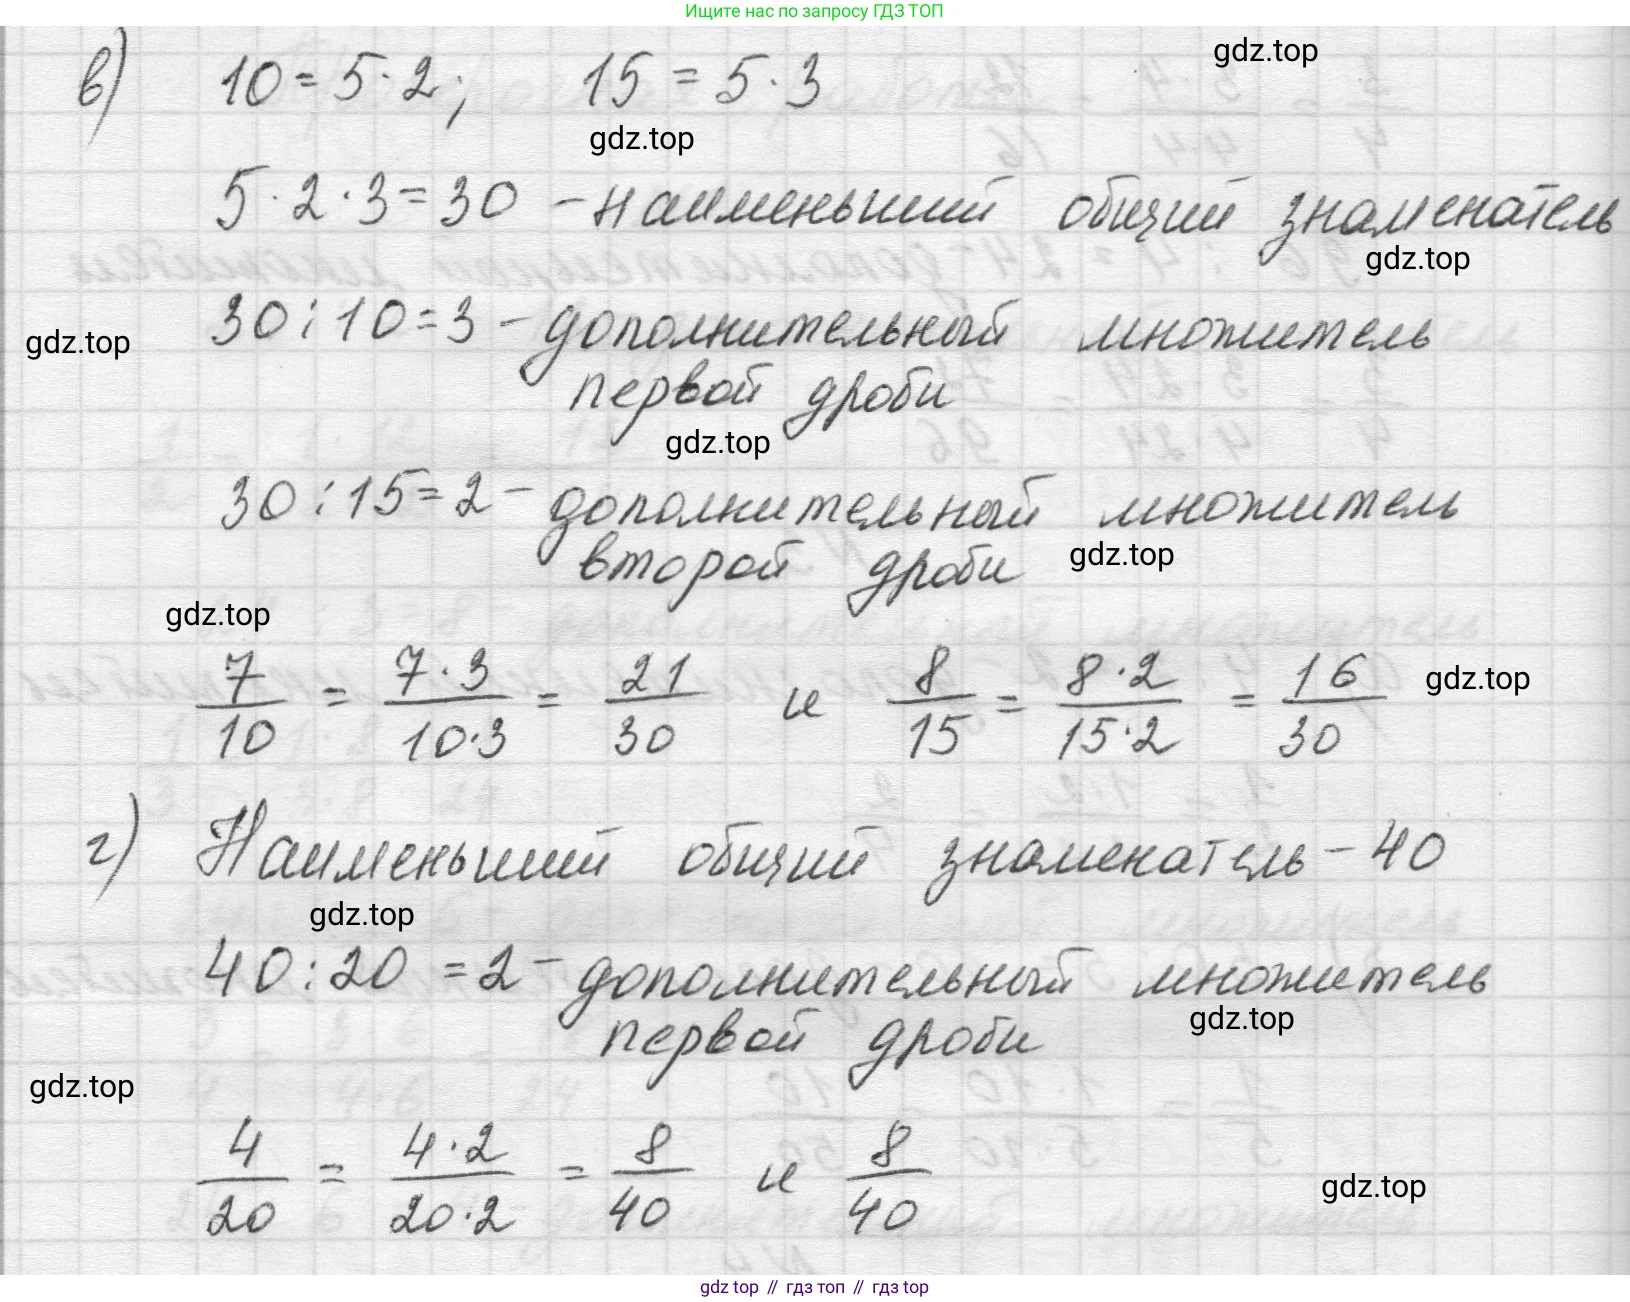 Ищите нас по запросу ГДЗ ТОП
в) 10 = 5 · 2; 15 = 5 · 3
gdz.top
gdz.top
5 · 2 · 3 = 30 – наименьший общий знаменатель
gdz.top
30 : 10 = 3 – дополнительный множитель
gdz.top
первой дроби
gdz.top
30 : 15 = 2 – дополнительный множитель
второй дроби
gdz.top
gdz.top
7/10 = 7·3/10·3 = 21/30 и 8/15 = 8·2/15·2 = 16/30
gdz.top
г) Наименьший общий знаменатель – 40
gdz.top
40 : 20 = 2 – дополнительный множитель
gdz.top
первой дроби
gdz.top
4/20 = 4·2/20·2 = 8/40 и 8/40
gdz.top
gdz top // гдз топ // гдз top